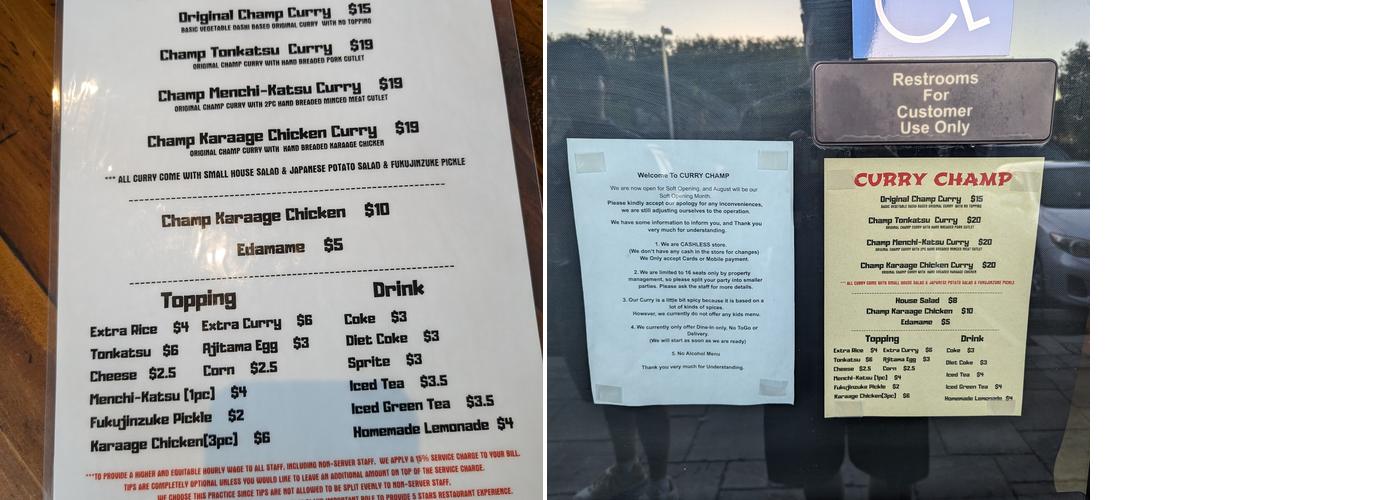 Original Champ Curry $15
BASIC VEGETABLE DASHI BASED ORIGINAL CURRY WITH NO TOPPING
Champ Tonkatsu Curry $19
ORIGINAL CHAMP CURRY WITH HAND BREADED PORK CUTLET
Champ Menchi-Katsu Curry $19
ORIGINAL CHAMP CURRY WITH 2PC HAND BREADED MINCED MEAT CUTLET
Champ Karaage Chicken Curry $19
ORIGINAL CHAMP CURRY WITH HAND BREADED KARAAGE CHICKEN
*** ALL CURRY COME WITH SMALL HOUSE SALAD & JAPANESE POTATO SALAD & FUKUJINZUKE PICKLE
Champ Karaage Chicken $10
Edamame $5
Topping
Extra Rice $4 Extra Curry $6
Tonkatsu $6 Ajitama Egg $3
Cheese $2.5 Corn $2.5
Menchi-Katsu [1pc] $4
Fukujinzuke Pickle $2
Karaage Chicken[3pc] $6
Drink
Coke $3
Diet Coke $3
Sprite $3
Iced Tea $3.5
Iced Green Tea $3.5
Homemade Lemonade $4
***TO PROVIDE A HIGHER AND EQUITABLE HOURLY WAGE TO ALL STAFF, INCLUDING NON-SERVER STAFF. WE APPLY A 15% SERVICE CHARGE TO YOUR BILL.
TIPS ARE COMPLETELY OPTIONAL UNLESS YOU WOULD LIKE TO LEAVE AN ADDITIONAL AMOUNT ON TOP OF THE SERVICE CHARGE.
WE CHOOSE THIS PRACTICE SINCE TIPS ARE NOT ALLOWED TO BE SPLIT EVENLY TO NON-SERVER STAFF.
ROLE TO PROVIDE 5 STARS RESTAURANT EXPERIENCE.
Restrooms
For
Customer
Use Only
Welcome To CURRY CHAMP
We are now open for Soft Opening, and August will be our
Soft Opening Month.
Please kindly accept our apology for any inconveniences,
we are still adjusting ourselves to the operation.
We have some information to inform you, and Thank you
very much for understanding.
1. We are CASHLESS store.
(We don't have any cash in the store for changes)
We Only accept Cards or Mobile payment.
2. We are limited to 16 seats only by property
management, so please split your party into smaller
parties. Please ask the staff for more details.
3. Our Curry is a little bit spicy because it is based on a
lot of kinds of spices.
However, we currently do not offer any kids menu.
4. We currently only offer Dine-In only, No ToGo or
Delivery.
(We will start as soon as we are ready)
5. No Alcohol Menu
Thank you very much for Understanding.
CURRY CHAMP
Original Champ Curry $15
BASIC VEGETABLE DASHI BASED ORIGINAL CURRY WITH NO TOPPING
Champ Tonkatsu Curry $20
ORIGINAL CHAMP CURRY WITH HAND BREADED PORK CUTLET
Champ Menchi-Katsu Curry $20
ORIGINAL CHAMP CURRY WITH 2PC HAND BREADED MINCED MEAT CUTLET
Champ Karaage Chicken Curry $20
ORIGINAL CHAMP CURRY WITH HAND BREADED KARAAGE CHICKEN
*** ALL CURRY COME WITH SMALL HOUSE SALAD & JAPANESE POTATO SALAD & FUKUJINZUKE PICKLE
House Salad $8
Champ Karaage Chicken $10
Edamame $5
Topping
Extra Rice $4 Extra Curry $6
Tonkatsu $6 Ajitama Egg $3
Cheese $2.5 Corn $2.5
Menchi-Katsu [1pc] $4
Fukujinzuke Pickle $2
Karaage Chicken[3pc] $6
Drink
Coke $3
Diet Coke $3
Iced Tea $4
Iced Green Tea $4
Homemade Lemonade $4